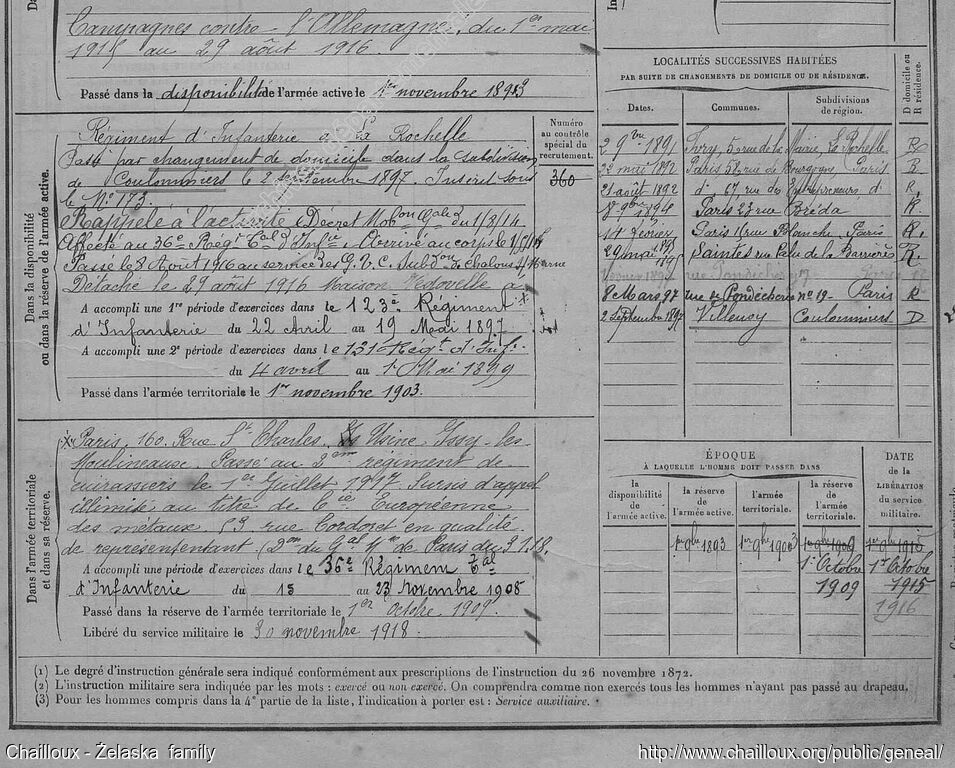 Campagnes contre l'Allemagne, du 1er mai
1915 au 29 août 1916
Passé dans la disponibilité de l'armée active le 1er novembre 1893
Régiment d'Infanterie à La Rochelle
Passé par changement de domicile dans la subdivision
de Coulommiers le 2 septembre 1897. Inscrit sous
le No 173.
Rappelé à l'activité (Décret Mobon Gale) du 1/8/14
Affecté au 36e Régt Tal d'Infie Arrivé au corps le
Passé le 8 Août 1916 au service des G.V.C. Subdon de Chalons s/Marne
Détaché le 29 août 1916 Maison Vedovelle à
A accompli une 1re période d'exercices dans le 123e Régiment
d'Infanterie du 22 Avril au 19 Mai 1897
A accompli une 2e période d'exercices dans le 131e Régt d'Infie
du 4 avril au 1er Mai 1899
Passé dans l'armée territoriale le 1er novembre 1903.
Dans la disponibilité
ou dans la réserve de l'armée active.
Numéro
au contrôle
spécial du
recrutement.
360
Paris, 160, Rue St Charles, Usine Issy-les
Moulineaux. Passé au 2em régiment de
cuirassiers le 1er Juillet 1917. Sursis d'appel
illimité au titre de Cie Européenne
des métaux rue Condorcet en qualité
de représentant (Don du Gal de Paris du 9.1.18.
A accompli une période d'exercices dans le 36e Régiment Tal
d'Infanterie du 15 au 23 Novembre 1908
Passé dans la réserve de l'armée territoriale le 1er Octobre 1909
Libéré du service militaire le 30 novembre 1918.
Dans l'armée territoriale
et dans sa réserve.
LOCALITÉS SUCCESSIVES HABITÉES
PAR SUITE DE CHANGEMENTS DE DOMICILE OU DE RÉSIDENCE.
Dates. Communes. Subdivisions de région. D domicile ou R résidence.
2 9bre 1891 Ivry, 5 rue de la Mairie La Rochelle R
22 mai 1892 Paris 52, rue de Bourgogne Paris R
21 août 1892 d° 67 rue des Entrepreneurs d° R
9bre 1894 Paris 23 rue Bréda R.
14 février Paris 11 rue Blanche Paris R.
29 mai 1895 Saintes rue de la R.
Février 1897 rue Pondichéry Paris
8 Mars 97 rue de Pondichéry no 19 - Paris R
2 Septembre 1897 Villenoy Coulommiers D
ÉPOQUE
À LAQUELLE L'HOMME DOIT PASSER DANS
DATE
de la
LIBÉRATION
du service
militaire.
la disponibilité de l'armée active. la réserve de l'armée active. l'armée territoriale. la réserve de l'armée territoriale.
1er 9bre 1893 1er 9bre 1903 1er 9bre 1909 1er 9bre 1915
1er Octobre 1er Octobre
1909 1915
1916
(1) Le degré d'instruction générale sera indiqué conformément aux prescriptions de l'instruction du 26 novembre 1872.
(2) L'instruction militaire sera indiquée par les mots : exercé ou non exercé. On comprendra comme non exercés tous les hommes n'ayant pas passé au drapeau.
(3) Pour les hommes compris dans la 4e partie de la liste, l'indication à porter est : Service auxiliaire.
Chailloux - Želaska family
http://www.chailloux.org/public/geneal/